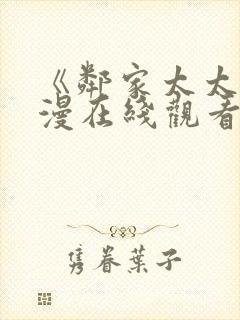 《鄰家太太
漫在綫觀看
隽眷葉子